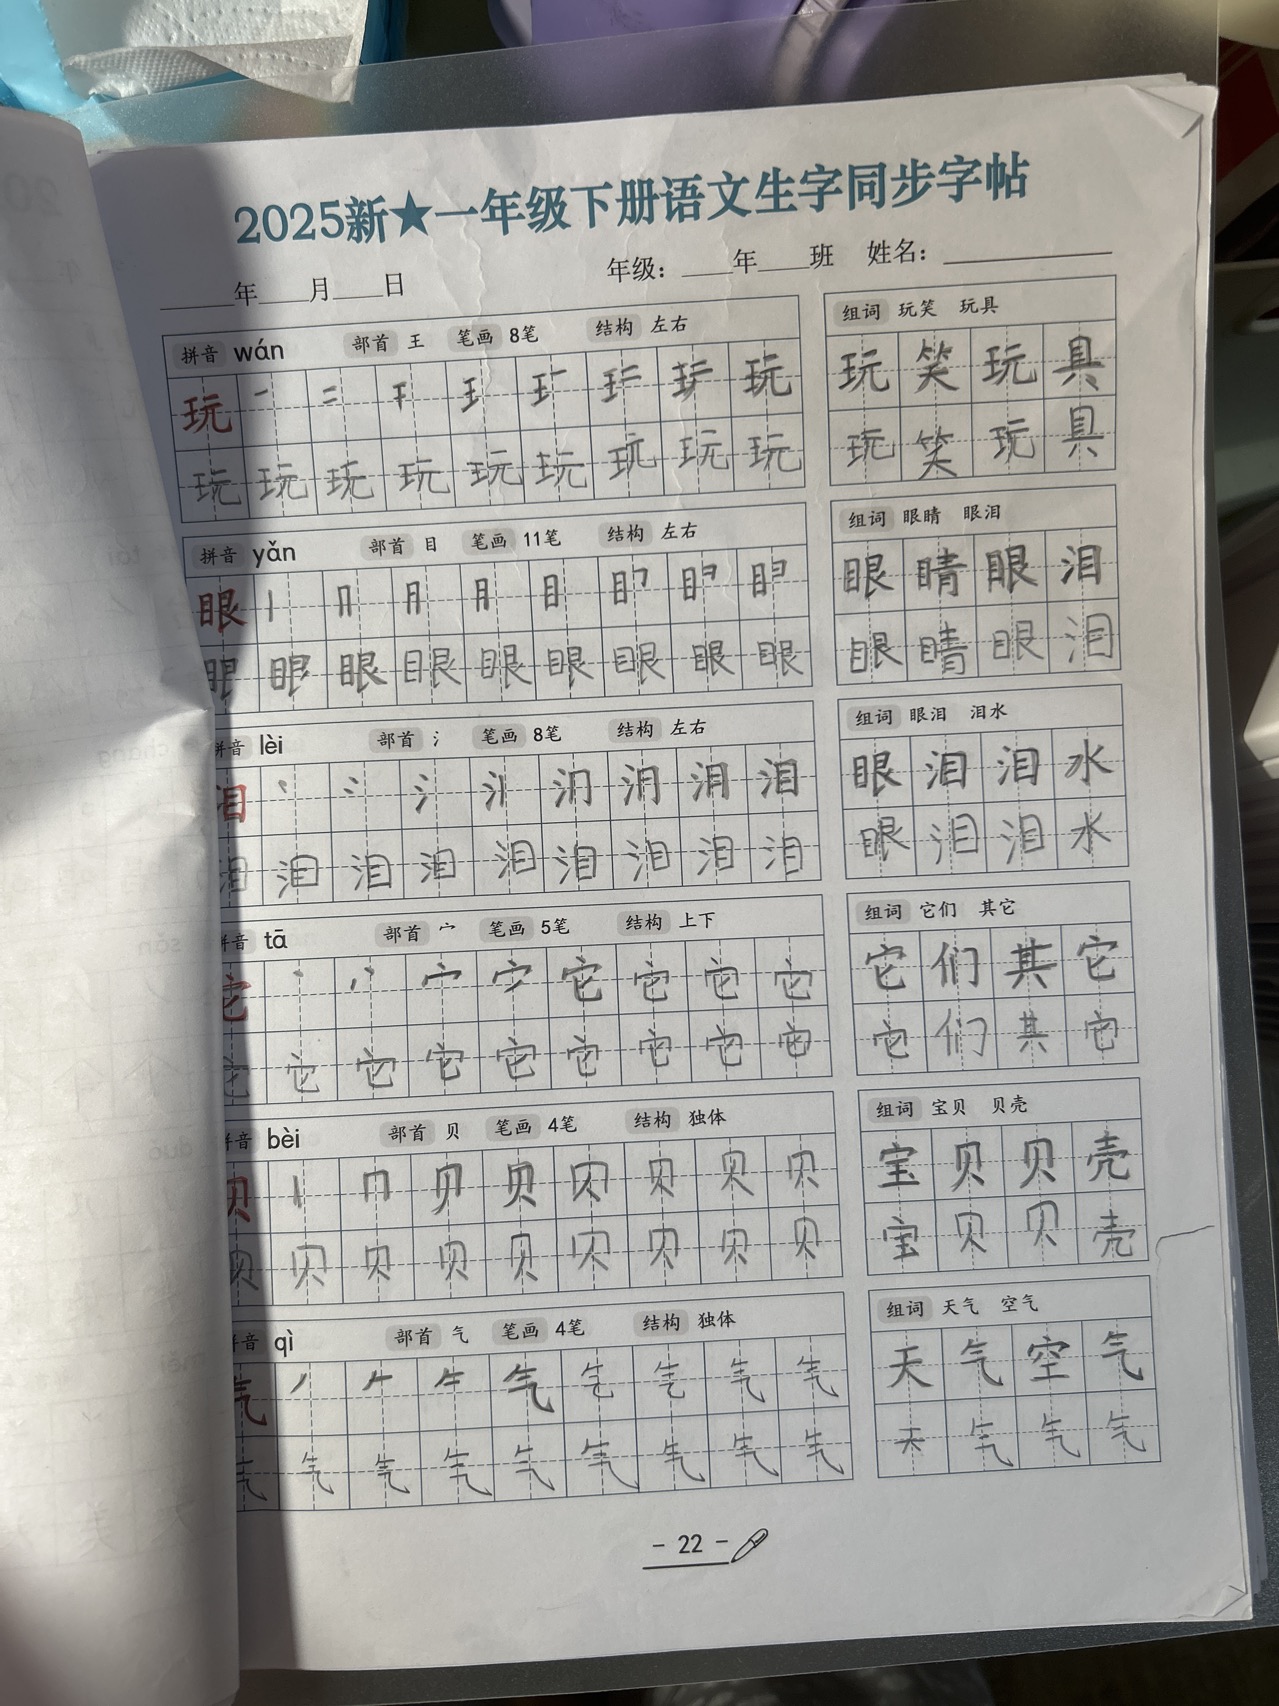 2025新★一年级下册语文生字同步字帖
____年____月____日 年级：____年____班 姓名：________
拼音 wán 部首 王 笔画 8笔 结构 左右
玩 玩
玩 玩 玩 玩 玩 玩 玩 玩 玩
组词 玩笑 玩具
玩 笑 玩 具
玩 笑 玩 具
拼音 yǎn 部首 目 笔画 11笔 结构 左右
眼 丨 目
眼 眼 眼 眼 眼 眼 眼 眼 眼
组词 眼睛 眼泪
眼 睛 眼 泪
眼 睛 眼 泪
拼音 lèi 部首 氵 笔画 8笔 结构 左右
泪 丶 氵 泪
泪 泪 泪 泪 泪 泪 泪 泪 泪
组词 眼泪 泪水
眼 泪 泪 水
眼 泪 泪 水
拼音 tā 部首 宀 笔画 5笔 结构 上下
它 丶 宀 它 它 它 它
它 它 它 它 它 它 它 它 它
组词 它们 其它
它 们 其 它
它 们 其 它
拼音 bèi 部首 贝 笔画 4笔 结构 独体
贝 丨 冂 贝 贝 贝 贝 贝
贝 贝 贝 贝 贝 贝 贝 贝 贝
组词 宝贝 贝壳
宝 贝 贝 壳
宝 贝 贝 壳
拼音 qì 部首 气 笔画 4笔 结构 独体
气 丿 气 气 气 气 气
气 气 气 气 气 气 气 气 气
组词 天气 空气
天 气 空 气
天 气 气 气
- 22 -